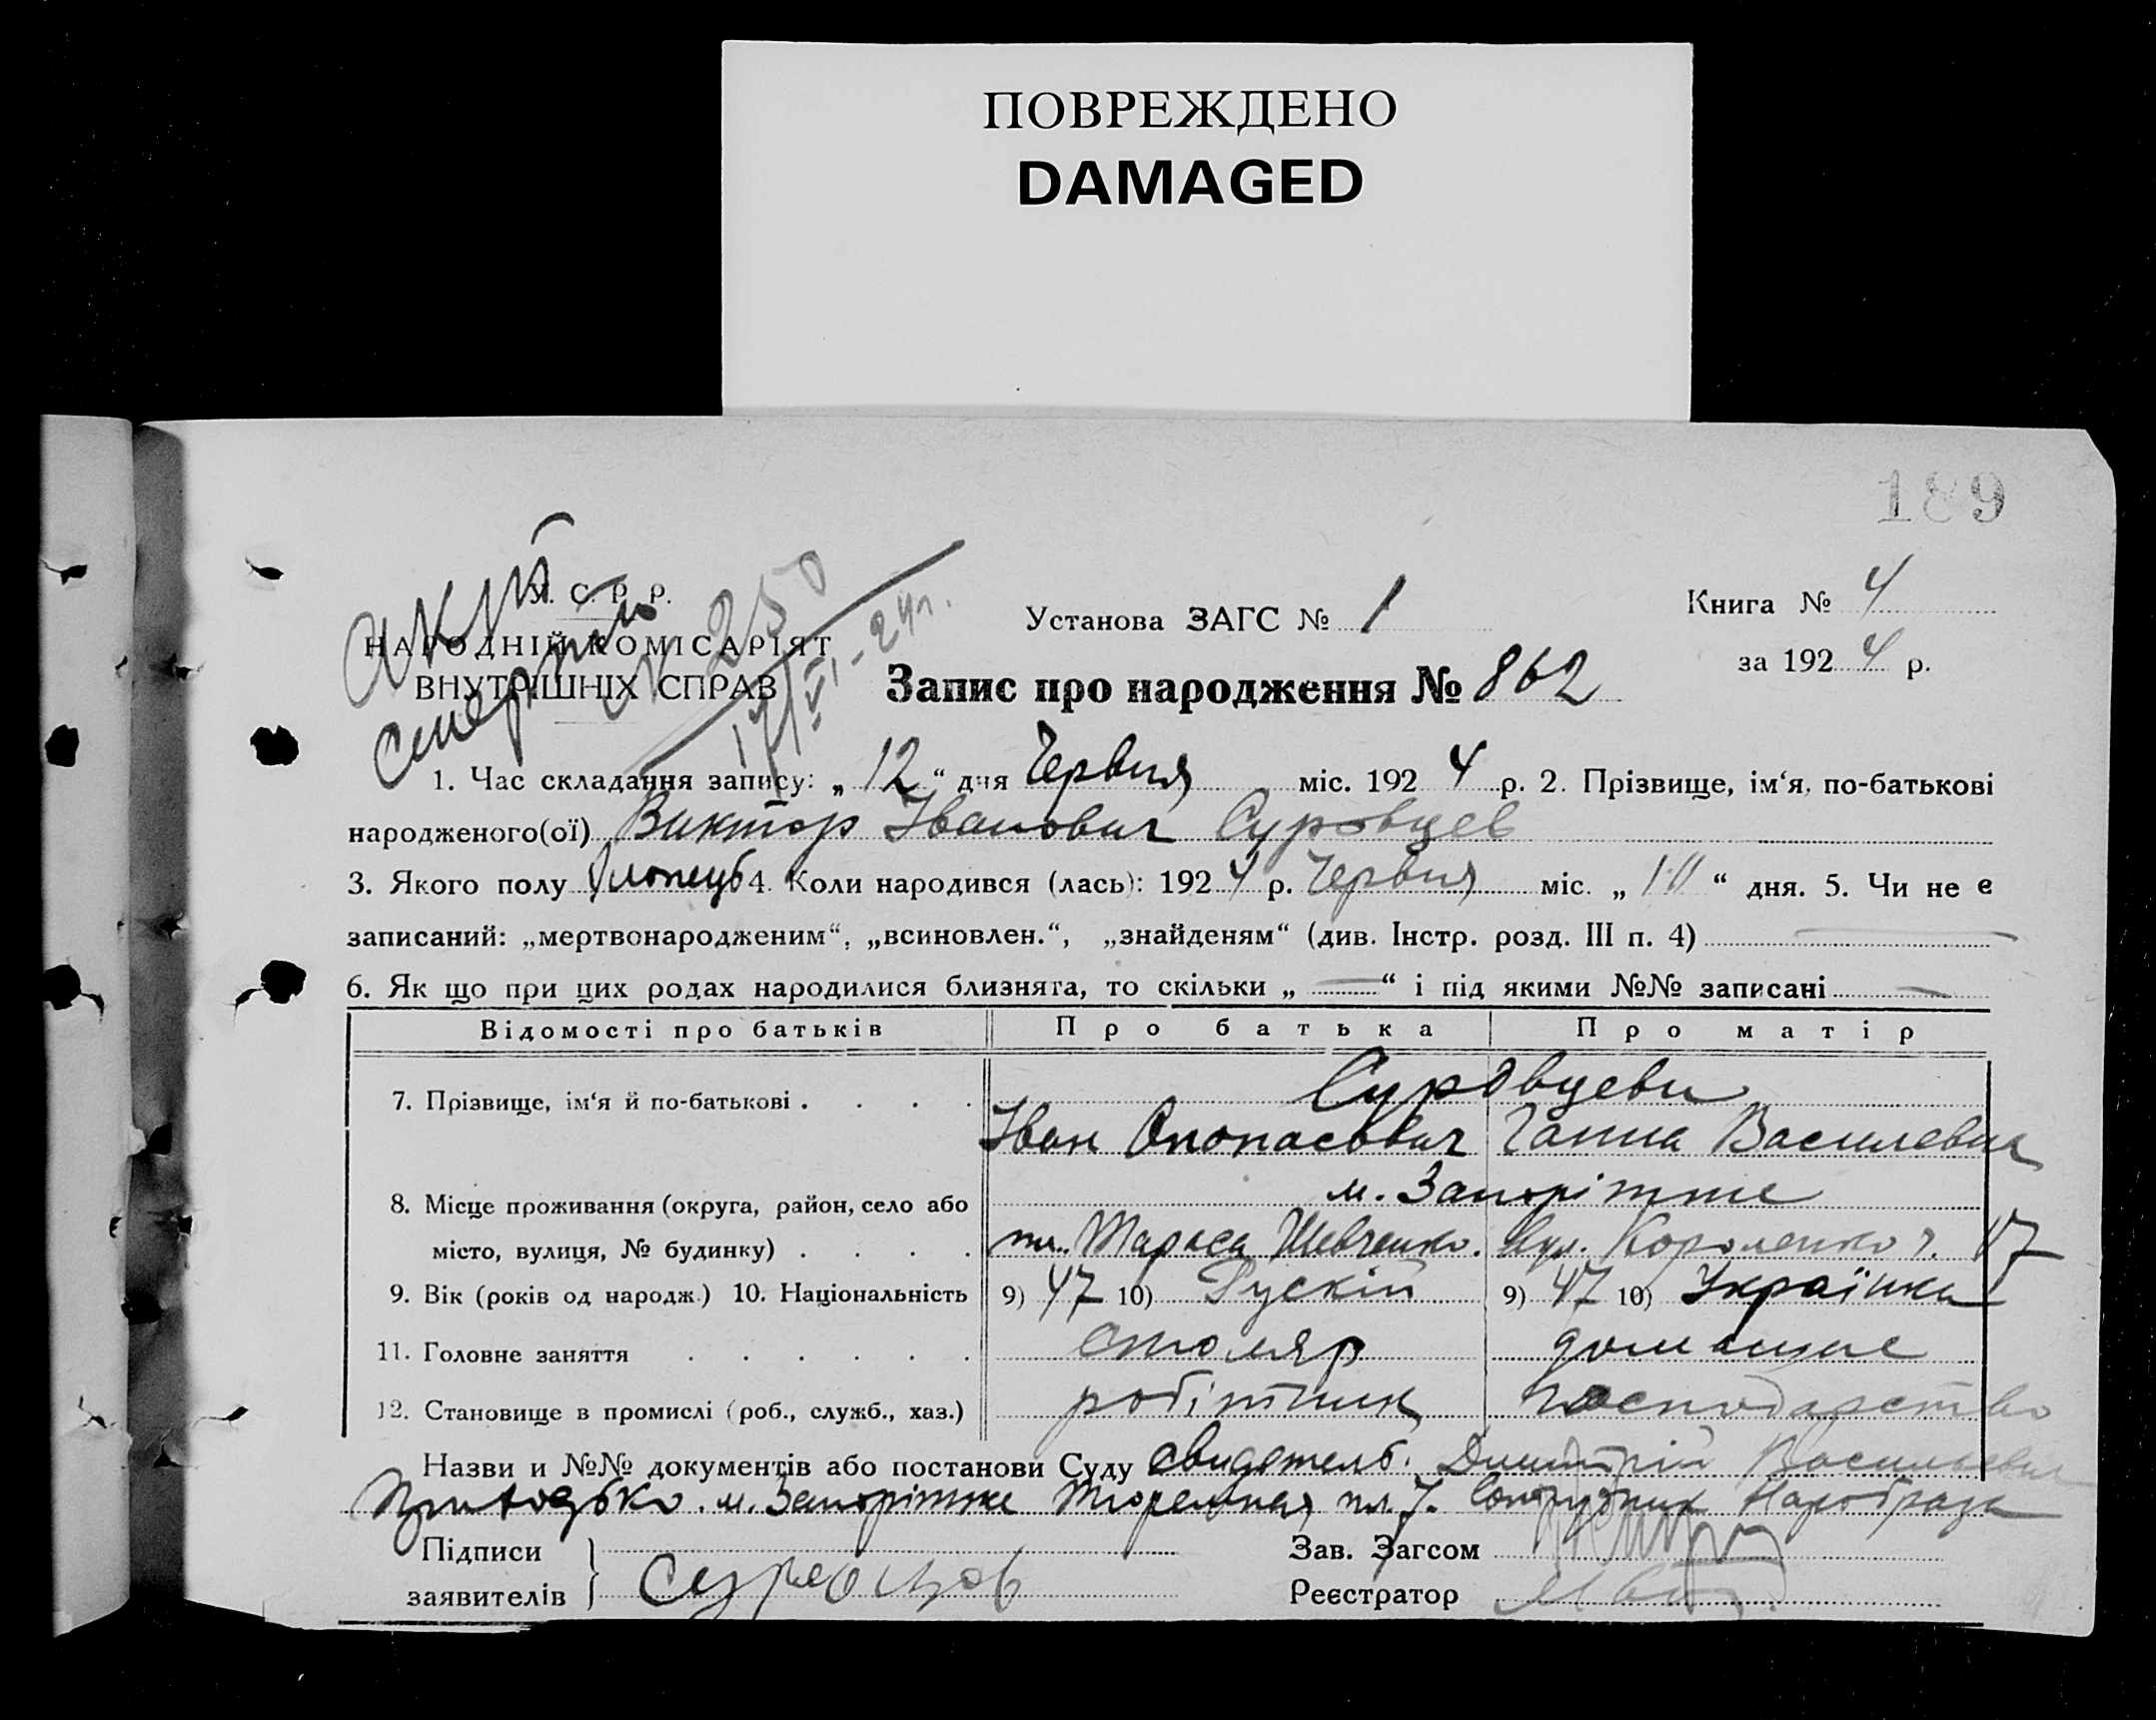 ПОВРЕЖДЕНО
DAMAGED
189
У. С. Р. Р.
НАРОДНІЙ КОМІСАРІЯТ
ВНУТРІШНІХ СПРАВ
Акт
смерти
№ 250
17/VI-24р.
Установа ЗАГС № 1
Книга № 4
за 1924 р.
Запис про народження № 862
1. Час складання запису: „12“ дня Червня міс. 1924 р. 2. Прізвище, ім‘я, по-батькові
народженого(ої) Виктор Іванович Суровцев
3. Якого полу Хлопець 4. Коли народився (лась): 1924 р. Червня міс. „10“ дня. 5. Чи не є
записаний: „мертвонародженим“, „всиновлен.“, „знайденям“ (див. Інстр. розд. III п. 4)
6. Як що при цих родах народилися близнята, то скільки „—“ і під якими №№ записані —
Відомості про батьків Про батька Про матір
7. Прізвище, ім‘я й по-батькові . . . . Суровцеви
Іван Опонасович Ганна Василевна
8. Місце проживання (округа, район, село або м. Запоріжже
місто, вулиця, № будинку) . . . . пл. Тараса Шевченко. вул. Короленко ч. 17
9. Вік (років од народж.) 10. Національність 9) 47 10) Рускій 9) 47 10) Українка
11. Головне заняття . . . . . . столяр домашнє
12. Становище в промислі (роб., служб., хаз.) робітник господарство
Назви и №№ документів або постанови Суду свидетель. Димитрій Васильевич
Приходько. м. Запоріжже Тюремная пл. 7. Сотрудник Наробраза
Підписи
заявителів
Зав. Загсом
Реєстратор